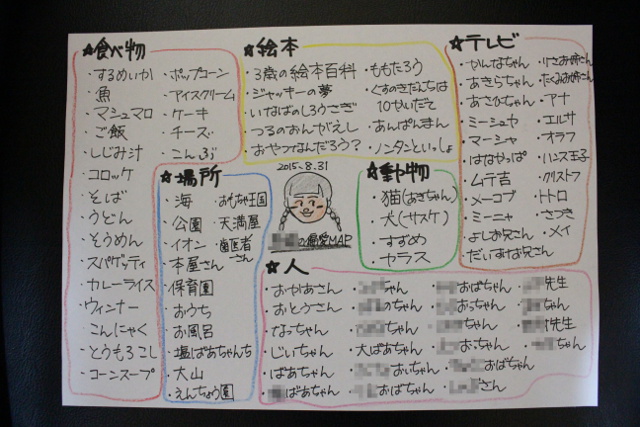 ☆食べ物
・するめいか
・魚
・マシュマロ
・ご飯
・しじみ汁
・コロッケ
・そば
・うどん
・そうめん
・スパゲッティ
・カレーライス
・ウィンナー
・こんにゃく
・とうもろこし
・コーンスープ
・ポップコーン
・アイスクリーム
・ケーキ
・チーズ
・こんぶ
☆絵本
・3歳の絵本百科
・ジャッキーの夢
・いなばのしろうさぎ
・つるのおんがえし
・おやつなんだろう?
・ももたろう
・ぐすのきだんちは
10かいだて
・あんぱんまん
・ノンタンといっしょ
☆テレビ
・かんなちゃん
・あきらちゃん
・あさひちゃん
・ミーシュヤ
・マーシャ
・はなかっぱ
・ムテ吉
・メーコブ
・ミーニャ
・よしお兄さん
・だいすけお兄さん
・りさお姉さん
・たくみお姉さん
・アナ
・エルサ
・オラフ
・ハンス王子
・クリストフ
・トトロ
・さつき
・メイ
☆場所
・海
・公園
・イオン
・本屋さん
・保育園
・おうち
・お風呂
・塩ばあちゃんち
・大山
・えんちょう園
・おもちゃ王国
・天満屋
・歯医者
さん
2015.8.31
の最愛MAP
☆動物
・猫(あきちゃん)
・犬(サスケ)
・すずめ
・カラス
☆人
・おかあさん
・おとうさん
・なっちゃん
・じいちゃん
・ばあちゃん
ばあちゃん
ちゃん
のちゃん
ちゃん
・大ばあちゃん
おいちゃん
おばちゃん
おばちゃん
おっちゃん
ちゃん
おにちゃん
おばちゃん
さん
先生
ちゃん
先生
ちゃん